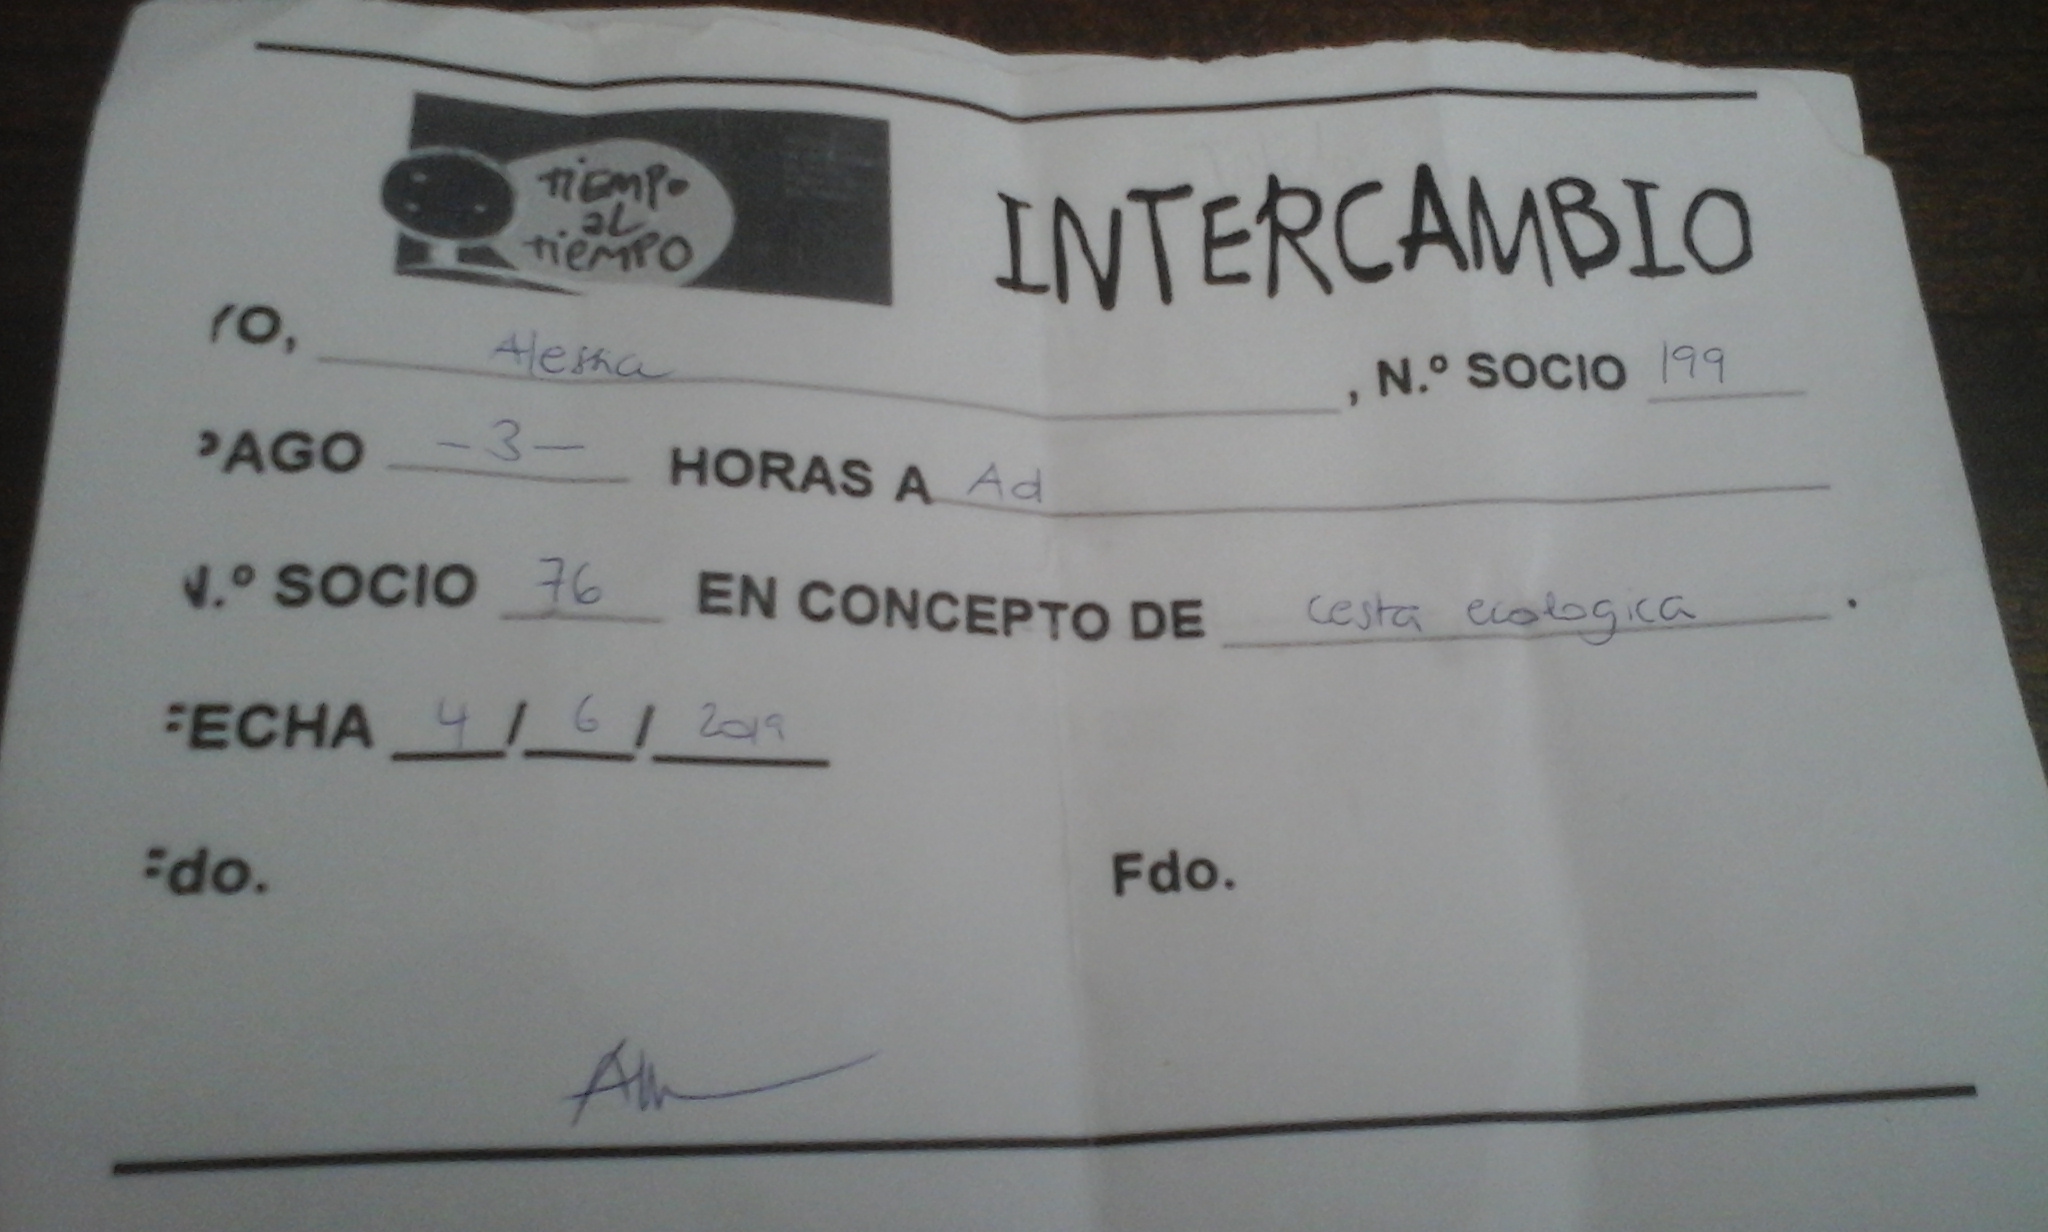 TIEMPO
AL
TIEMPO
INTERCAMBIO
YO, Alessia, N.º SOCIO 199
PAGO -3- HORAS A Ad
N.º SOCIO 76 EN CONCEPTO DE cesta ecologica.
FECHA 4 / 6 / 2019
Fdo. Fdo.